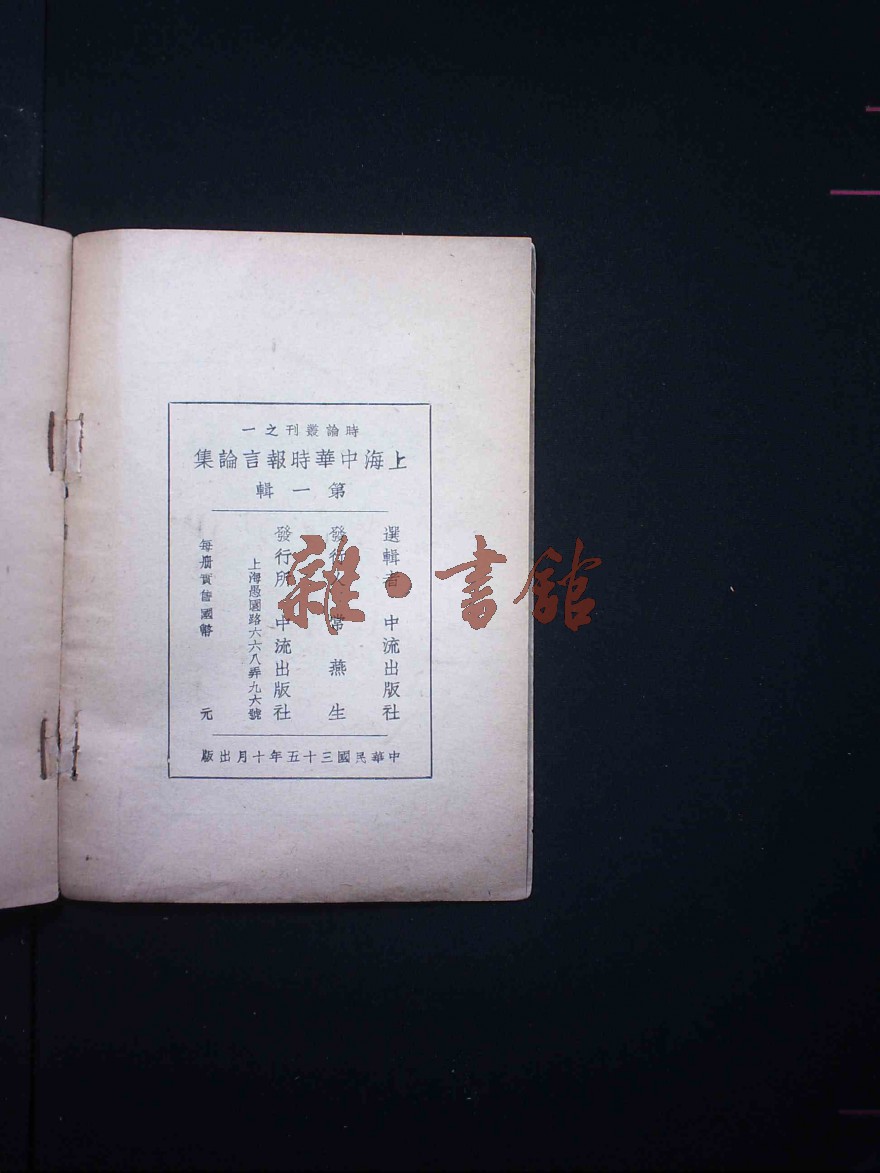 時論叢刊之一
上海中華時報言論集
第一輯
選輯者 中流出版社
發行人 常燕生
發行所 中流出版社
上海愚園路六六八弄九六號
每册實售國幣 元
中華民國三十五年十月出版
雜·書館